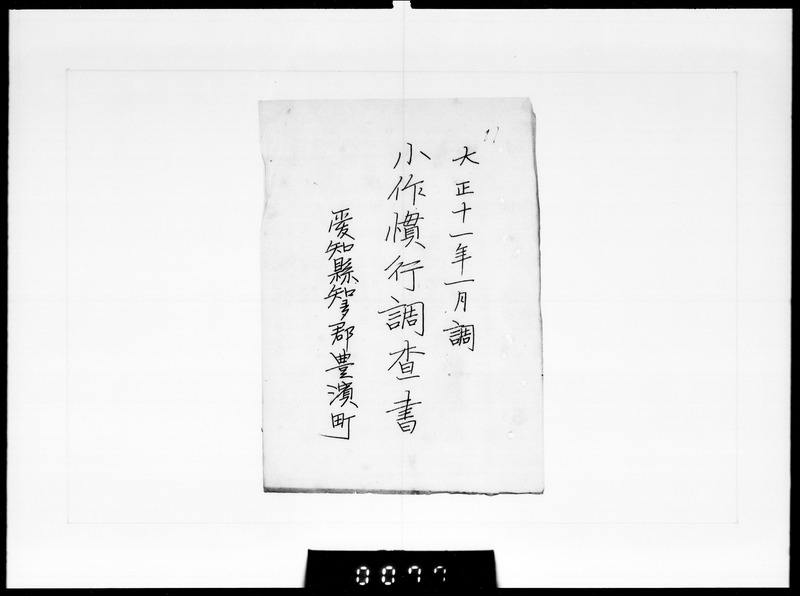 大正十一年一月調
小作慣行調査書
愛知縣知多郡豊濱町
0077